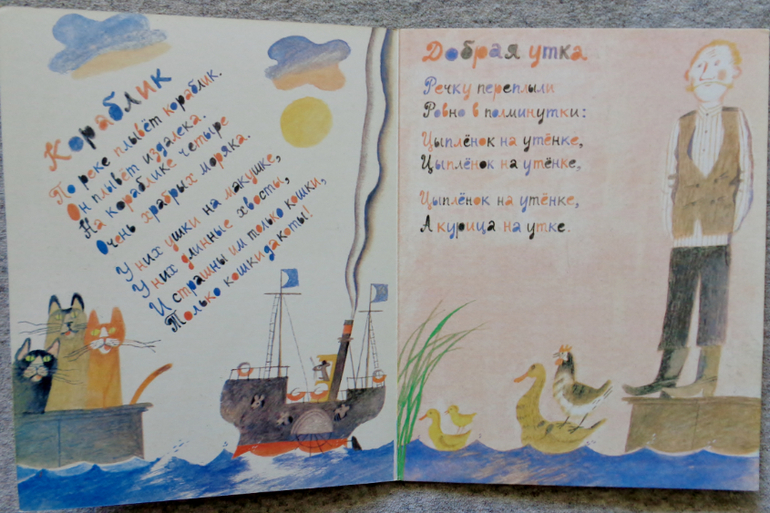 Кораблик
По реке плывёт кораблик.
Он плывёт издалека.
На кораблике четыре
Очень храбрых моряка.
У них ушки на макушке,
У них длинные хвосты,
И страшны им только кошки,
Только кошки да коты!
Добрая утка
Речку переплыли
Ровно в полминутки:
Цыплёнок на утёнке,
Цыплёнок на утёнке,
Цыплёнок на утёнке,
А курица на утке.